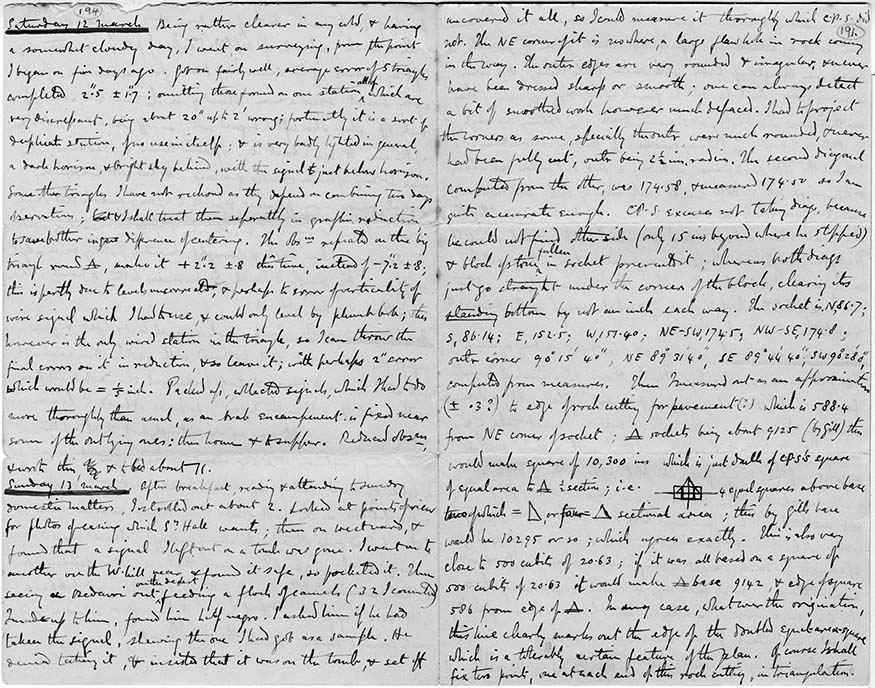 194
Saturday 12 March Being rather clearer in my cold, & having
a somewhat cloudy day, I went on surveying, from the point
I began on five days ago. Got on fairly well; average error of 5 triangles
completed 2".5 ± ".7; omitting those found on one station which are
very discrepant, being about 20" up to 2' wrong; fortunately it is a sort of
duplicate station, of no use in itself; & is very badly lighted in general,
a dark horizon, & bright sky behind, with the signal just below horizon.
Some other triangles I have not reckoned as they depend on combining two days
observations; & I shall treat them separately in graphic reduction
to save bother in difference of centering. The obsns repeated on the big
triangle round Δ, make it + 2".2 ± .8 this time, instead of - 7".2 ± .8;
this is partly due to levels uncorrected, & perhaps to error of verticality of
wire signal which I had to use, & could only level by plumb bob; this
however is the only wired station in the triangle, so I can throw the
final error on it in reduction, & so leave it; with perhaps 2" error
which would be = ⅕ inch. Packed up, collected signals, which I had to do
more thoroughly than usual, as an Arab encampment is fixed near
some of the outlying ones: then home & to supper. Reduced obsns,
& wrote this & to bed about 11.
Sunday 13 March After breakfast, reading & attending to sundry
domestic matters, I strolled out about 2. Looked at points of view
for photos of casing which Dr Hall wants; then on westward, &
found that a signal I left out on a tomb was gone. I went on to
another on the W. hill near & found it safe, so pocketed it. Then
seeing a Bedawi out on the desert feeding a flock of camels (32 I counted)
I made up to him, found him half negro. I asked him if he had
taken the signal, shewing the one I had got as a sample. He
denied taking it, & insisted that it was on the tomb & set off
191.
uncovered it all, so I could measure it thoroughly which C.P.S. did
not. The NE corner of it is nowhere, a large flaw hole in rock coming
in the way. The outer edges are very rounded & irregular & never
have been dressed sharp or smooth; one can always detect
a bit of smoothed work however much defaced. I had to project
the corners as some, specially the outer were much rounded, or never
had been fully cut, outer being 2½ in. radius. The second diagonal
computed from the other, was 174.58, & measured 174.50 so I am
quite accurate enough. C.P.S. excuses not taking diags, because
he could not find other side (only 15 ins beyond where he stopped)
& block of stone fallen in socket prevented it; whereas both diags
just go straight under the corners of the block, clearing its
standing bottom by not an inch each way. The socket is, N, 86.7;
S, 86.14; E, 152.5; W, 151.40; NE-SW, 174.5; NW-SE, 174.8;
outer corner 90° 15' 40", NE 89° 31' 40", SE 89° 44' 40", SW 90° 28' 0",
computed from measures. Then I measured out as an approximation
(± .3?) to edge of rock cutting for pavement (?) which is 588.4
from NE corner of socket; Δ sockets being about 9125 (by Gill) this
would make square of 10,300 ins which is just double of C.P.S's square
of equal area to Δ ½ section; i.e. 4 equal squares above base
two of which = or four = Δ sectional area; this by Gill's base
would be 10295 or so; which agrees exactly. This is also very
close to 500 cubits of 20.63; if it was all based on a square of
500 cubits of 20.63 it would make Δ base 9142 & edge of square
586 from edge of Δ. In any case, whatever the origination,
this line clearly marks out the edge of the doubled equal-area-square
which is a tolerably certain feature of the plan. Of course I shall
fix two points, one at each end of this rock cutting, in triangulation.